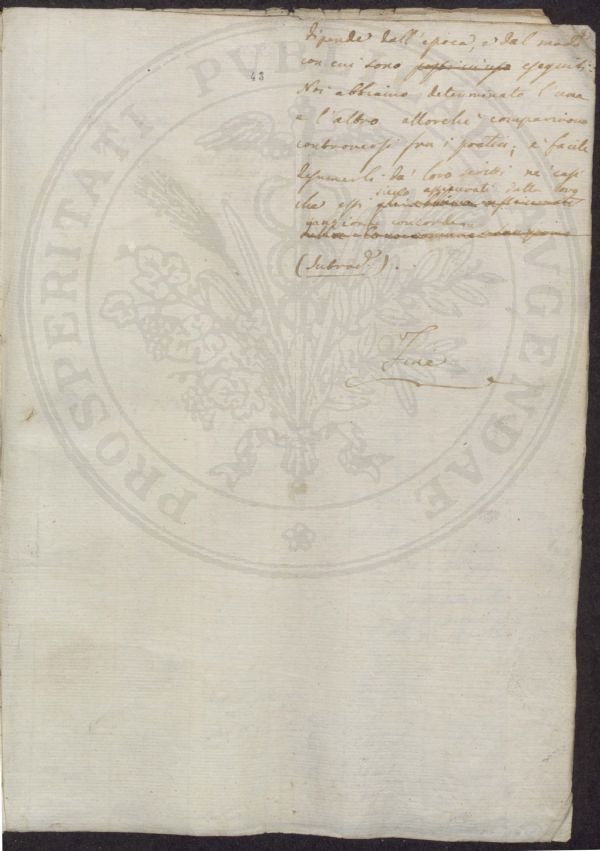 43
dipende dall'epoca, e dal modo
con cui sono eseguiti.
Noi abbiamo determinato l'una
e l'altro allorchè comparivano
controversi fra i pratici; è facile
desumerli da' loro scritti ne' casi
sieno appurati dalla loro
che essi
concorde
(Subrad.ª).
Fine
PROSPERITATI PUBLICAE AUGENDAE